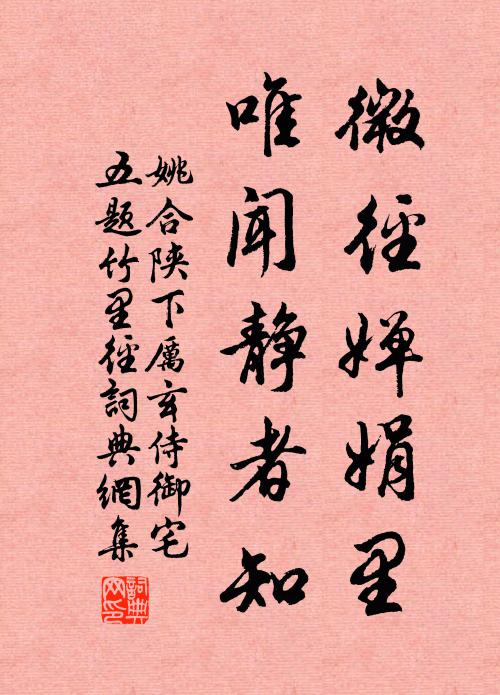 微徑婵娟里
唯闻静者知
姚合陕下厲玄侍御宅
五题竹里徑詞典網集
詞典网印